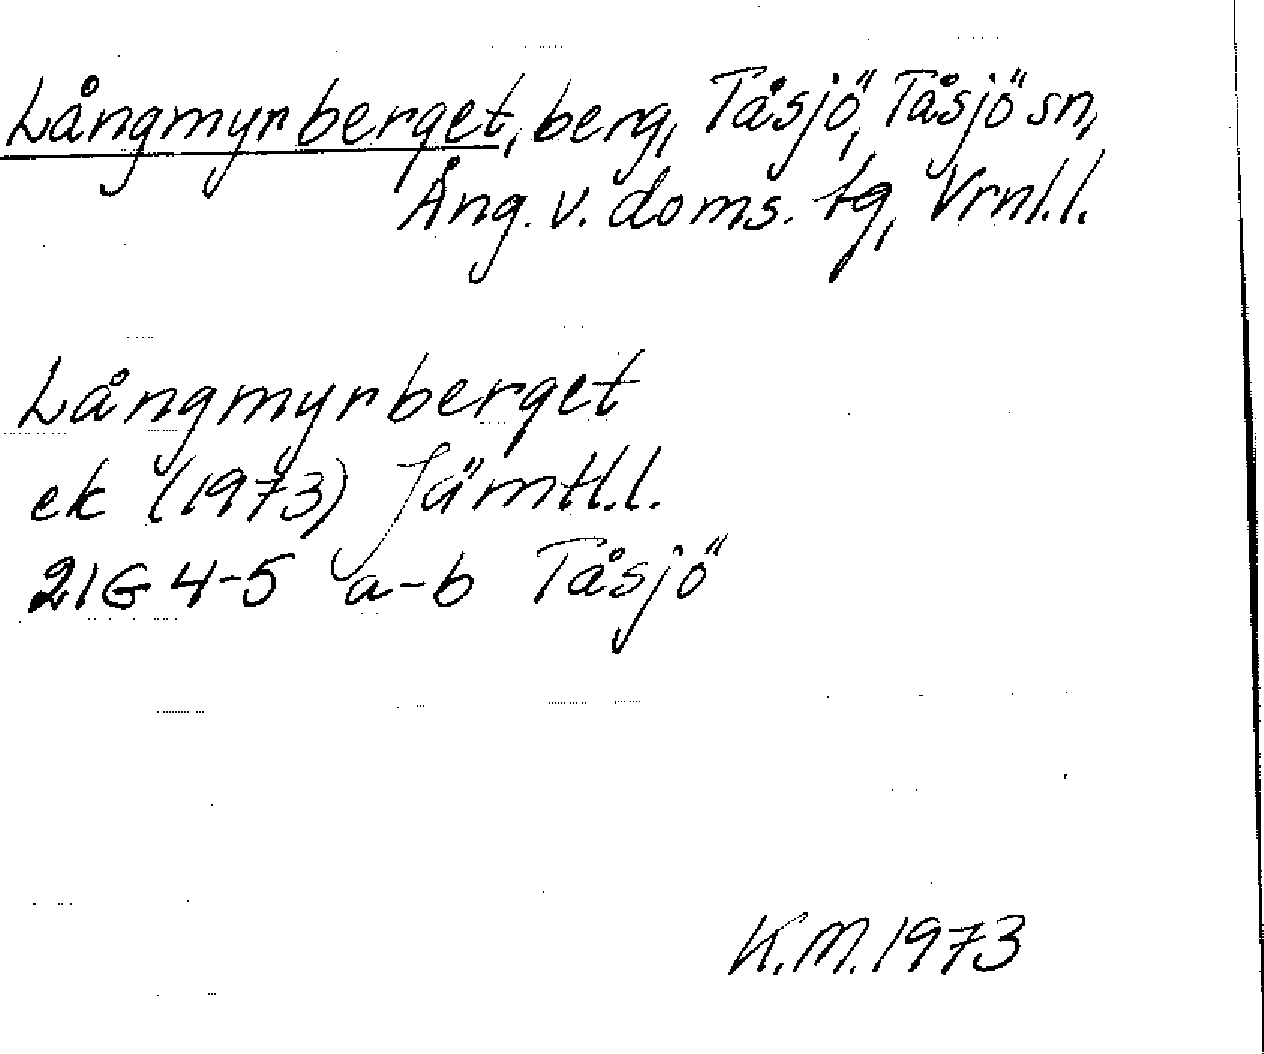 Långmyrberget, berg, Tåsjö, Tåsjö sn,
Ång. v. doms. tg, Vrnl.l.
Långmyrberget
ek (1973) Jämtl.l.
21G 4-5 a-b Tåsjö
K.M. 1973